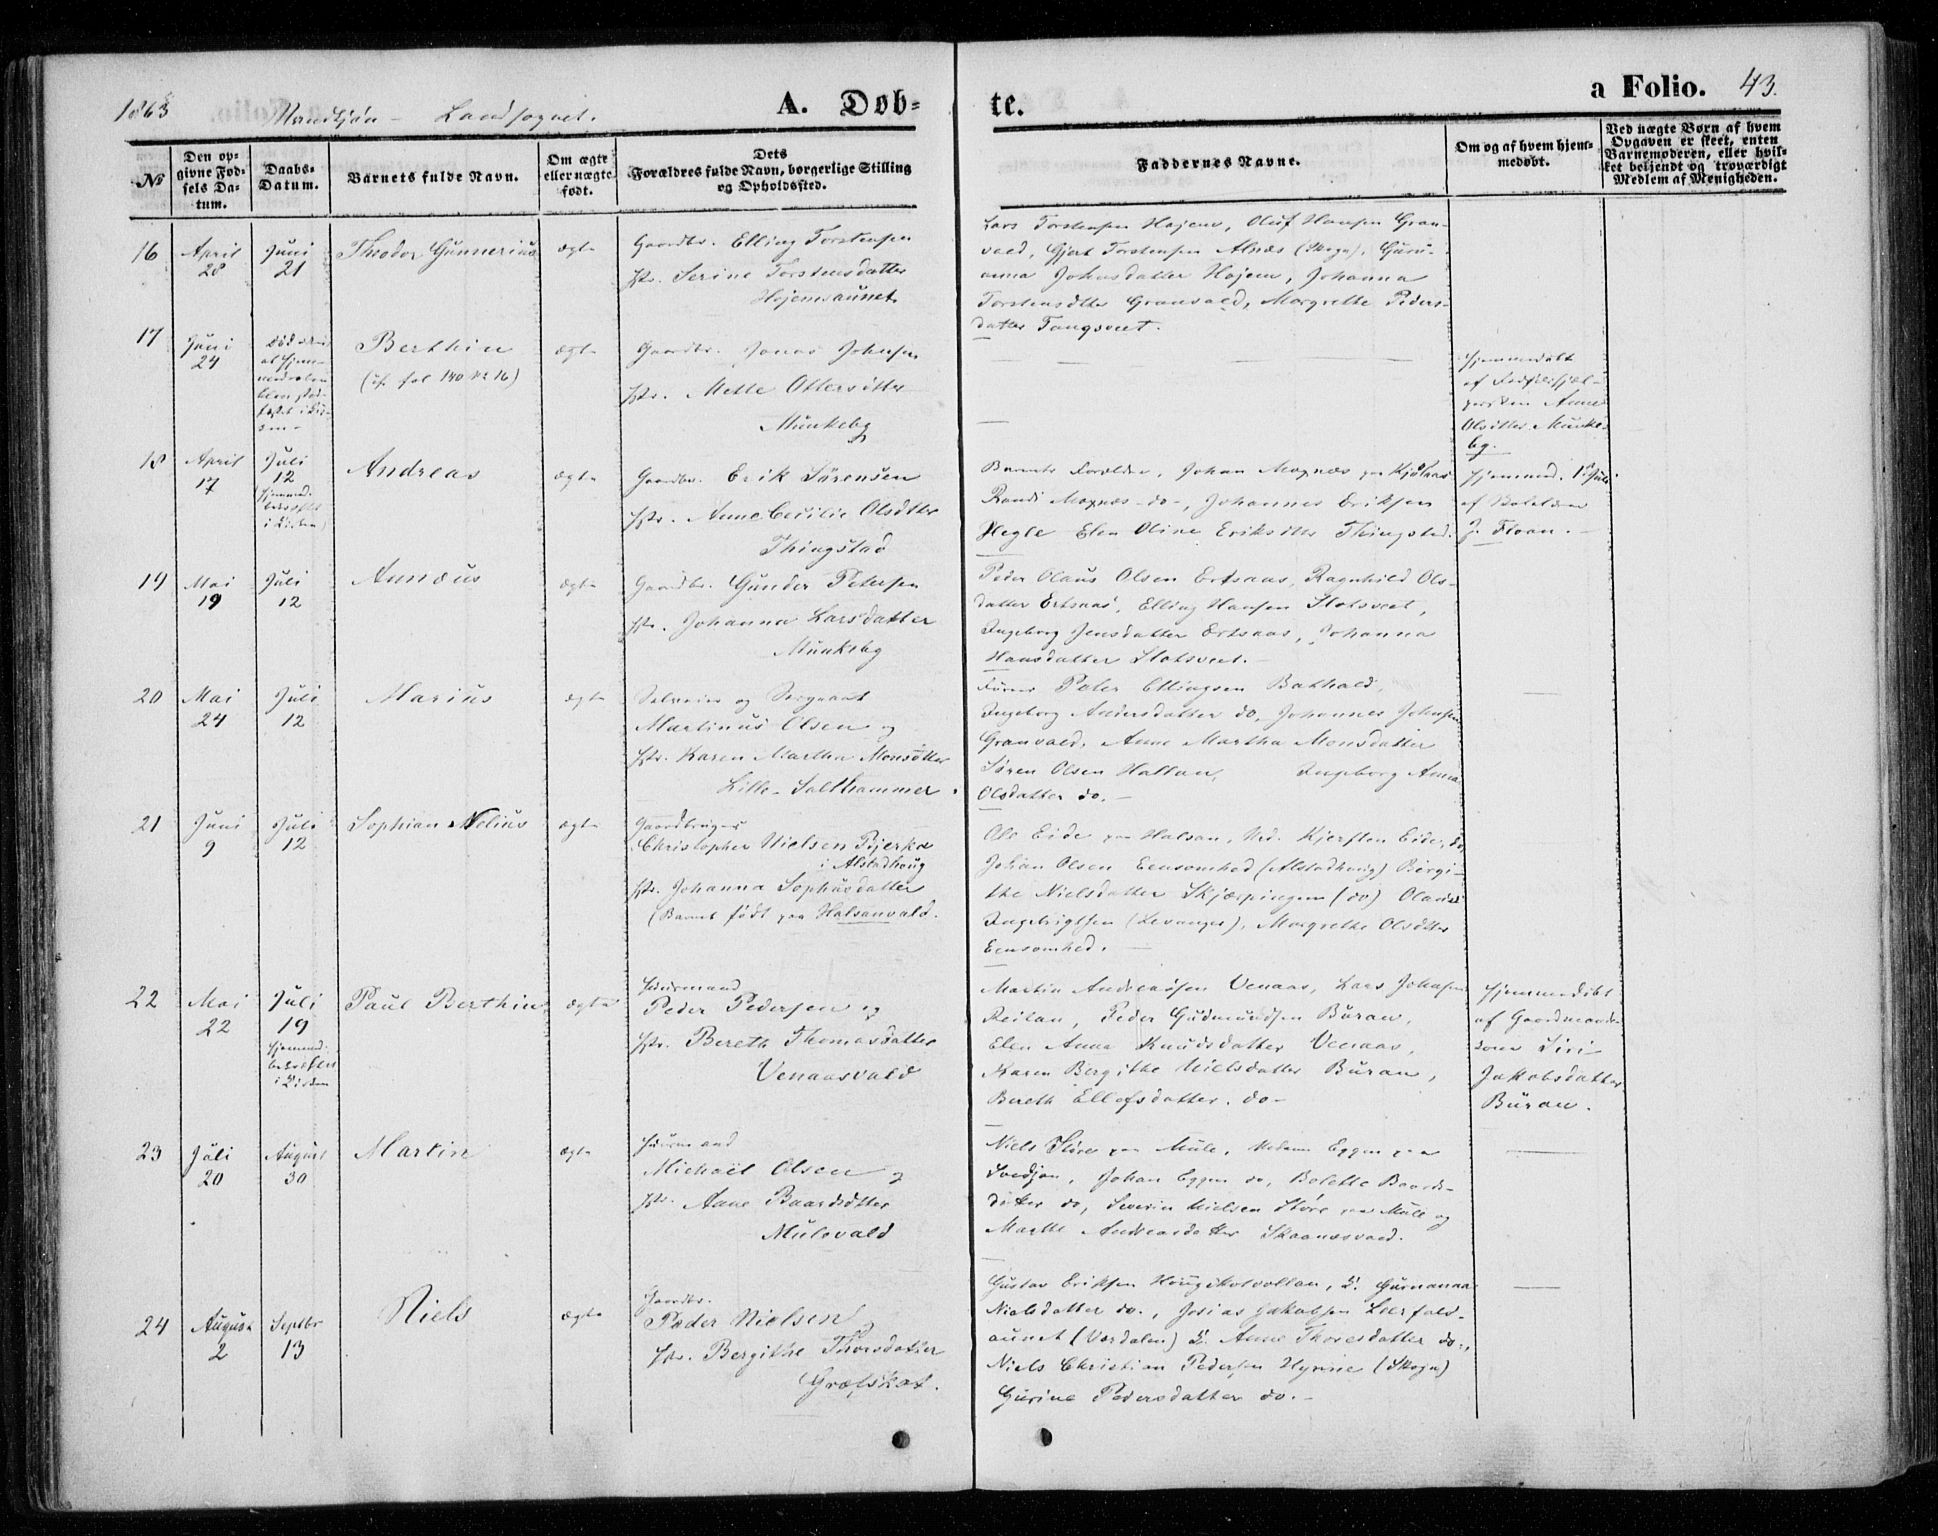 1863
Landsognet.
A. Døb=
te.
a Folio. 43.
№
Den op=
givne Fød=
sels Da=
tum.
Daabs=
Datum.
Barnets fulde Navn.
Om ægte
eller uægte
født.
Dets
Forældres fulde Navn, borgerlige Stilling
og Opholdssted.
Faddernes Navne.
Om og af hvem hjem=
medøbt.
Ved uægte Børn af hvem
Opgaven er skeet, enten
Barnemoderen, eller hvil=
ket beljendt og troværdigt
Medlem af Menigheden.
16
April
28
Juni
21
Theodor Gunnerius
ægte
Gaardbr. Elling Torstensen
Hstr. Serine Torstensdatter
Hojemsaunet
Lars Torstensen Hojem, Oluf Hansen Gran-
vald, Gjert Torstensen Alnæs (Skogn), Guru-
anna Johnsdatter Hojem, Johanna
Torstensdtter Granvald, Margrethe Peders-
datter Tangsveet.
17
Juni
24
Berthin
(cfr. fol 140 № 16)
ægte
Gaardbr. Jonas Johnsen
Hstr. Mette Ottersdtter
Munkeby
Hjemmedøbt
af
Anne
Olsdtter Munke-
by.
18
April
17
Juli
12
Hjemmed.
bekræftet
i Kirken
Andreas
ægte
Gaardbr. Erik Sørensen
Hstr. Anne Cecilie Olsdtter
Thingstad
Barnets Forældre, Johan Moxnæs paa
Randi Moxnæs do, Johannes Eriksen
Hegle Elen Oline Eriksdtter Thingstad.
Hjemmed. 1ste Juli
af
J. Floan.
19
Mai
19
Juli
12
Annæus
ægte
Gaardbr. Gunder Petersen
Hstr. Johanna Larsdatter
Munkeby
Peder Olaus Olsen Ertsaas, Ragnhild Ols-
datter Ertsaas, Elling Hansen Slotsveet,
Ingeborg Jensdatter Ertsaas, Johanna
Hansdatter Slotsveet.
20
Mai
24
Juli
12
Marius
ægte
Selveier og Sergeant
Martinus Olsen og
Hstr. Karen Martha Monsdtter
Lille-Salthammer.
Peter Ellingsen Bakhald,
Ingeborg Andersdatter do, Johannes Johnsen
Granvald, Anne Martha Monsdatter
Søren Olsen Hallan, Ingeborg Anna
Olsdatter do.
21
Juni
9
Juli
12
Sophian Nelius
ægte
Gaardbruger
Christopher Nielsen Bjerka
i Alstadhoug
Hstr. Johanna Sophusdatter
(Barnet født paa Halsanvald.
Ole Eide paa Halsan, Mad. Kjersten Eide, do
Johan Olsen Eensomhed (Alstadhoug) Børgi-
the Nielsdatter Skjærpingen (do) Olaus
Ingebrigtsen (Levanger), Margrethe Olsdtter
Eensomhed.
22
Mai
22
Juli
19
Hjemmed.
bekræftet
i Kirken
Paul Berthin
ægte
Huusmand
Peder Pedersen og
Hstr. Bereth Thomasdatter
Venaasvald
Martin Andreassen Venaas, Lars Johnsen
Reitan, Peder Gudmundsen Buran,
Elen Anna Knudsdatter Venaas,
Karen Bergithe Nielsdatter Buran,
Bereth Ellefsdatter do
Hjemmedøbt
af Gaardmands-
kone Siri
Jakobsdatter
Buran.
23
Juli
20
August
30
Martin
ægte
Huusmand
Michael Olsen og
Hstr. Anne Baardsdtter
Mulevald
Niels Støre paa Mule, Madam Eggen paa
Svedjan, Johan Eggen do, Bolette Baards-
datter do, Severin Nielsen Støre paa Mule og
Marthe Andreasdatter Skaanæsvald.
24
August
2
Septbr
13
Niels
ægte
Gaardbr.
Peder Nielsen og
Hstr. Bergithe Thoresdatter
Græfskot.
Gustav Eriksen Hougskotvollan, K. Gurnanna
Nielsdatter do., Josias Jakobsen Leerfals-
aunet (Værdalen) K. Anne Thoresdatter do.,
Niels Christian Pedersen Hynne (Skogn)
Gurine Pedersdatter do.